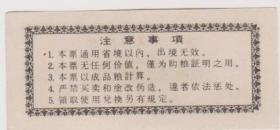 注意事項
1.本票通用省境以内，出境无效。
2.本票无任何价值，僅为购粮証明之用。
3.本票以成品粮計算。
4.严禁买卖和塗改伪造，違者依法惩处。
5.領取使用兌换另有規定。